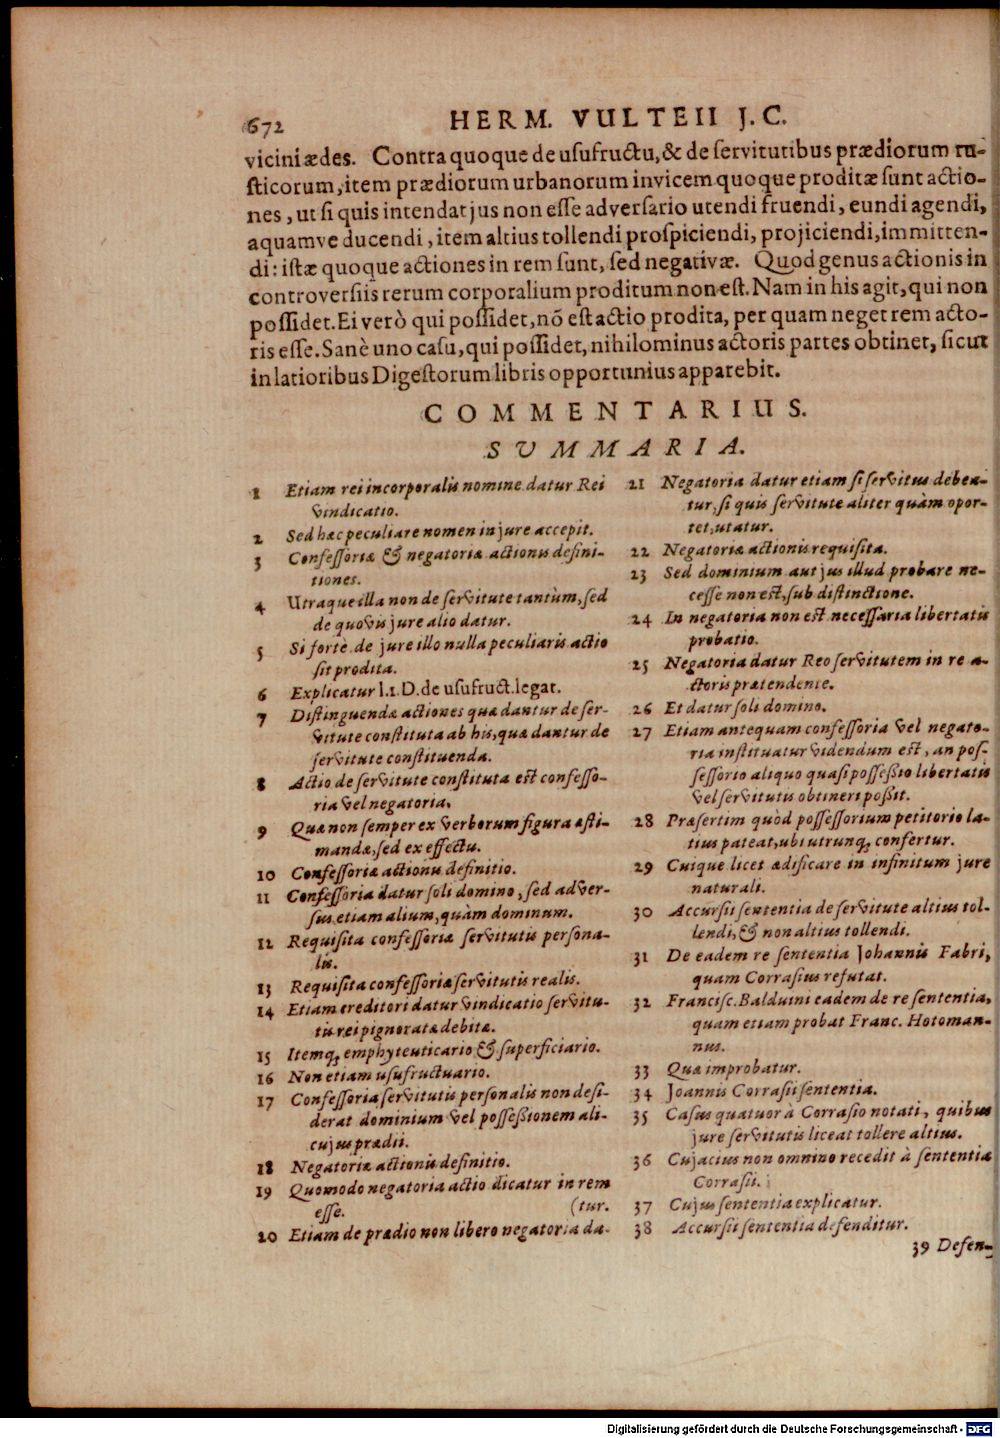 672 HERM. VULTEII J.C.
vicini ædes. Contra quoque de usufructu, & de servitutibus prædiorum ru-
sticorum, item prædiorum urbanorum invicem quoque proditæ sunt actio-
nes, ut si quis intendat jus non esse adversario utendi fruendi, eundi agendi,
aquamve ducendi, item altius tollendi prospiciendi, projiciendi, immitten-
di: istæ quoque actiones in rem sunt, sed negativæ. Quod genus actionis in
controversiis rerum corporalium proditum non est. Nam in his agit, qui non
possidet. Ei verò qui possidet, nõ est actio prodita, per quam neget rem acto-
ris esse. Sanè uno casu, qui possidet, nihilominus actoris partes obtinet, sicut
in latioribus Digestorum libris opportunius apparebit.
COMMENTARIUS.
SUMMARIA.
1 Etiam rei incorporalis nomine datur Rei
vindicatio.
2 Sed hæc peculiare nomen in jure accepit.
3 Confessoriæ & negatoriæ actionis defini-
tiones.
4 Utraque illa non de servitute tantùm, sed
de quovis jure alio datur.
5 Si fortè de jure illo nulla peculiaris actio
sit prodita.
6 Explicatur l.1.D. de usufruct. legat.
7 Distinguendæ actiones quæ dantur de ser-
vitute constituta ab his, quæ dantur de
servitute constituenda.
8 Actio de servitute constituta est confesso-
ria vel negatoria.
9 Quæ non semper ex verborum figura æsti-
mandæ, sed ex effectu.
10 Confessoriæ actionis definitio.
11 Confessoria datur soli domino, sed adver-
sus etiam alium, quàm dominum.
12 Requisita confessoriæ servitutis persona-
lis.
13 Requisita confessoriæ servitutis realis.
14 Etiam creditori datur vindicatio servitu-
tis rei pignoratæ debitæ.
15 Itemq; emphyteuticario & superficiario.
16 Non etiam usufructuario.
17 Confessoria servitutis personalis non desi-
derat dominium vel possessionem ali-
cujus prædii.
18 Negatoriæ actionis definitio.
19 Quomodo negatoria actio dicatur in rem
esse. (tur.
20 Etiam de prædio non libero negatoria da-
21 Negatoria datur etiam si servitus debea-
tur, si quis servitute aliter quàm opor-
tet, utatur.
22 Negatoriæ actionis requisita.
23 Sed dominium aut jus illud probare ne-
cesse non est, sub distinctione.
24 In negatoria non est necessaria libertatis
probatio.
25 Negatoria datur Reo servitutem in re a-
ctoris prætendente.
26 Et datur soli domino.
27 Etiam antequam confessoria vel negato-
ria instituatur videndum est, an pos-
sessorio aliquo quasi possessio libertatis
vel servitutis obtineri possit.
28 Præsertim quòd possessorium petitorio la-
tius pateat, ubi utrunq; confertur.
29 Cuique licet ædificare in infinitum jure
naturali.
30 Accursii sententia de servitute altius tol-
lendi, & non altius tollendi.
31 De eadem re sententia Johannis Fabri,
quam Corrasius refutat.
32 Francisc. Balduini eadem de re sententia,
quam etiam probat Franc. Hotoman-
nus.
33 Quæ improbatur.
34 Joannis Corrasii sententia.
35 Casus quatuor à Corrasio notati, quibus
jure servitutis liceat tollere altius.
36 Cujacius non omnino recedit à sententia
Corrasii.
37 Cujus sententia explicatur.
38 Accursii sententia defenditur.
39 Defen-
Digitalisierung gefördert durch die Deutsche Forschungsgemeinschaft - DFG